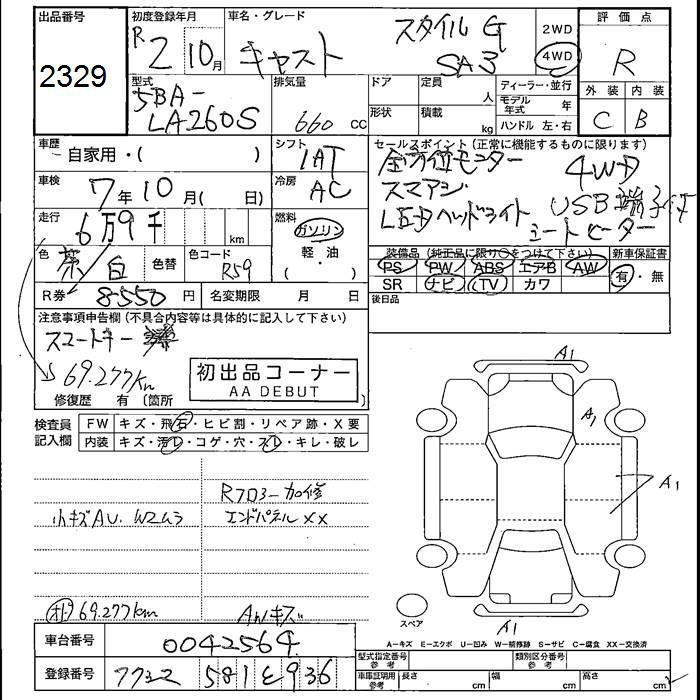 出品番号
2329
初度登録年月
R2 10月
車名・グレード
キャスト
スタイル G
SA3
2WD
4WD
評価点
R
外装 内装
C B
型式
5BA-
LA260S
排気量
660 cc
ドア
定員
人
形状
積載
kg
ディーラー・並行
モデル年式 年
ハンドル 左・右
車歴
自家用・( )
シフト
1AT
車検
7年10月( 日)
冷房
AC
走行
6万9千
km
燃料
ガソリン
軽・油
( )
色
茶/白
色替
色コード
R59
R券
8-550円
名変期限 月 日
セールスポイント(正常に機能するものに限ります)
全方位モニター 4WD
スマアシ USB端子付
LEDヘッドライト シートヒーター
装備品(純正品に限り○をつけて下さい) 新車保証書
PS PW ABS エアB AW 有・無
SR ナビ TV カワ
後日品
注意事項申告欄(不具合内容等は具体的に記入して下さい)
スマートキー
69.277km
初出品コーナー
AA DEBUT
修復歴 有(箇所
検査員記入欄
FW キズ・飛石・ヒビ割・リペア跡・X要
内装 キズ・汚レ・コゲ・穴・スレ・キレ・破レ
小キズAU. W2ムラ
Rフロアー加修
エンドパネルXX
オド 69.277km
AWキズ
A1
A1
A1
A1
スペア
A-キズ E-エクボ U-凹み W-補修跡 S-サビ C-腐食 XX-交換済
車台番号
0042564
登録番号
581 を 936
型式指定番号 参考
類別区分番号 参考
車庫証明用 参考
長さ cm
幅 cm
高さ cm